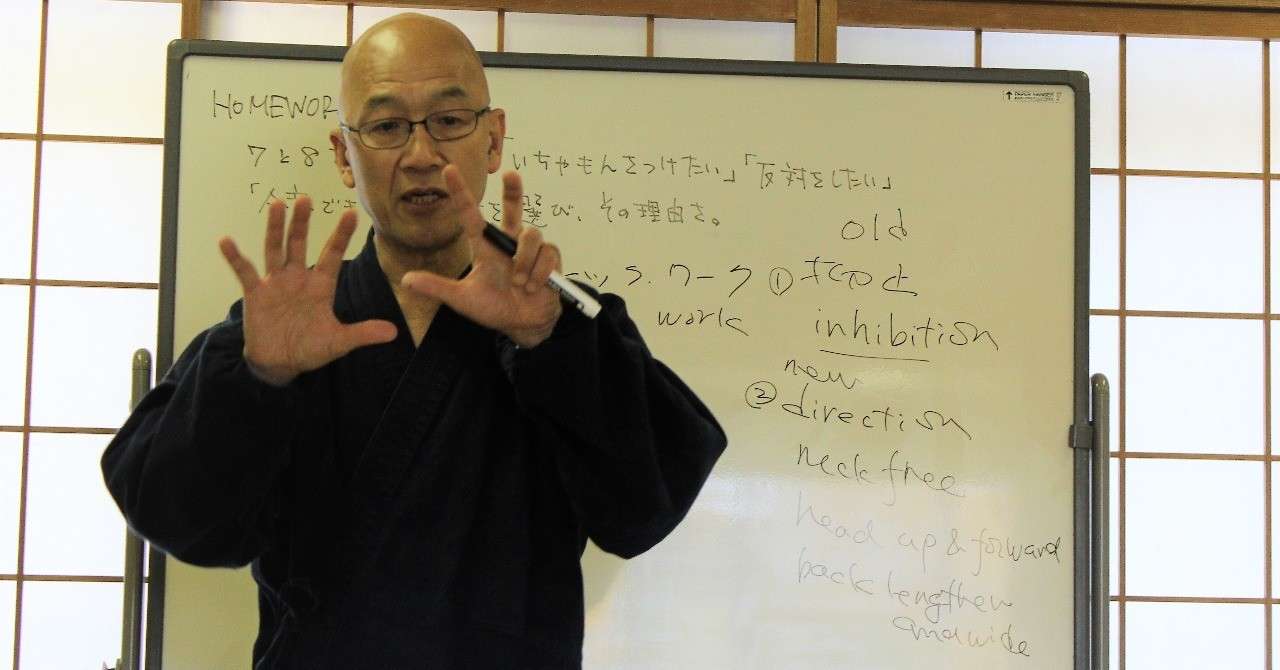 HOMEWOR
7と8 いちゃもんをつけたい」「反対をしたい」
を選び、その理由を。
old
ワーク ① 抑止
work inhibition
new
② direction
neck free
head up & forward
back lengthen
and wide